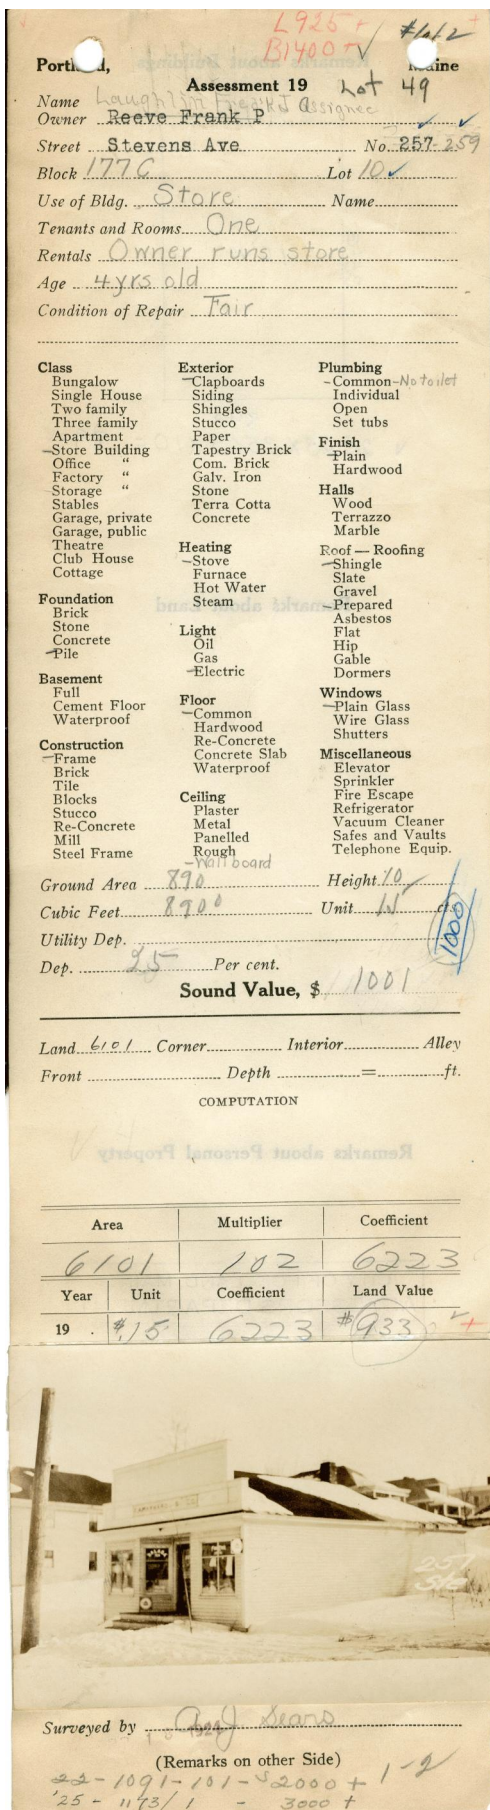 L925 +
B1400 + ✓ #1 of 2 +
Portland, Maine
Assessment 19 Lot 49
Name Laughlin Assignee
Owner Reeve Frank P
Street Stevens Ave No. 257-259
Block 177C Lot 10 ✓
Use of Bldg. Store Name
Tenants and Rooms One
Rentals Owner runs store
Age 4 yrs old
Condition of Repair Fair
Class
Bungalow
Single House
Two family
Three family
Apartment
- Store Building
Office "
Factory "
Storage "
Stables
Garage, private
Garage, public
Theatre
Club House
Cottage
Foundation
Brick
Stone
Concrete
- Pile
Basement
Full
Cement Floor
Waterproof
Construction
- Frame
Brick
Tile
Blocks
Stucco
Re-Concrete
Mill
Steel Frame
Exterior
- Clapboards
Siding
Shingles
Stucco
Paper
Tapestry Brick
Com. Brick
Galv. Iron
Stone
Terra Cotta
Concrete
Heating
- Stove
Furnace
Hot Water
Steam
Light
Oil
Gas
- Electric
Floor
- Common
Hardwood
Re-Concrete
Concrete Slab
Waterproof
Ceiling
Plaster
Metal
Panelled
Rough
- Wall board
Plumbing
- Common - No toilet
Individual
Open
Set tubs
Finish
- Plain
Hardwood
Halls
Wood
Terrazzo
Marble
Roof — Roofing
- Shingle
Slate
Gravel
- Prepared
Asbestos
Flat
Hip
Gable
Dormers
Windows
- Plain Glass
Wire Glass
Shutters
Miscellaneous
Elevator
Sprinkler
Fire Escape
Refrigerator
Vacuum Cleaner
Safes and Vaults
Telephone Equip.
Ground Area 890 Height 10
Cubic Feet 8900 Unit 15 cts
1000
Utility Dep.
Dep. 25 Per cent.
Sound Value, $ 1001
Land 6101 Corner Interior Alley
Front Depth = ft.
COMPUTATION
Remarks about Personal Property
Area Multiplier Coefficient
6101 102 6223
Year Unit Coefficient Land Value
19 . $.15 6223 $933 ✓ +
257
Ste
Surveyed by A J Sears
(Remarks on other Side)
22 - 1091 - 101 - $2000 + 1-2
'25 - 1173/1 - 3000 +